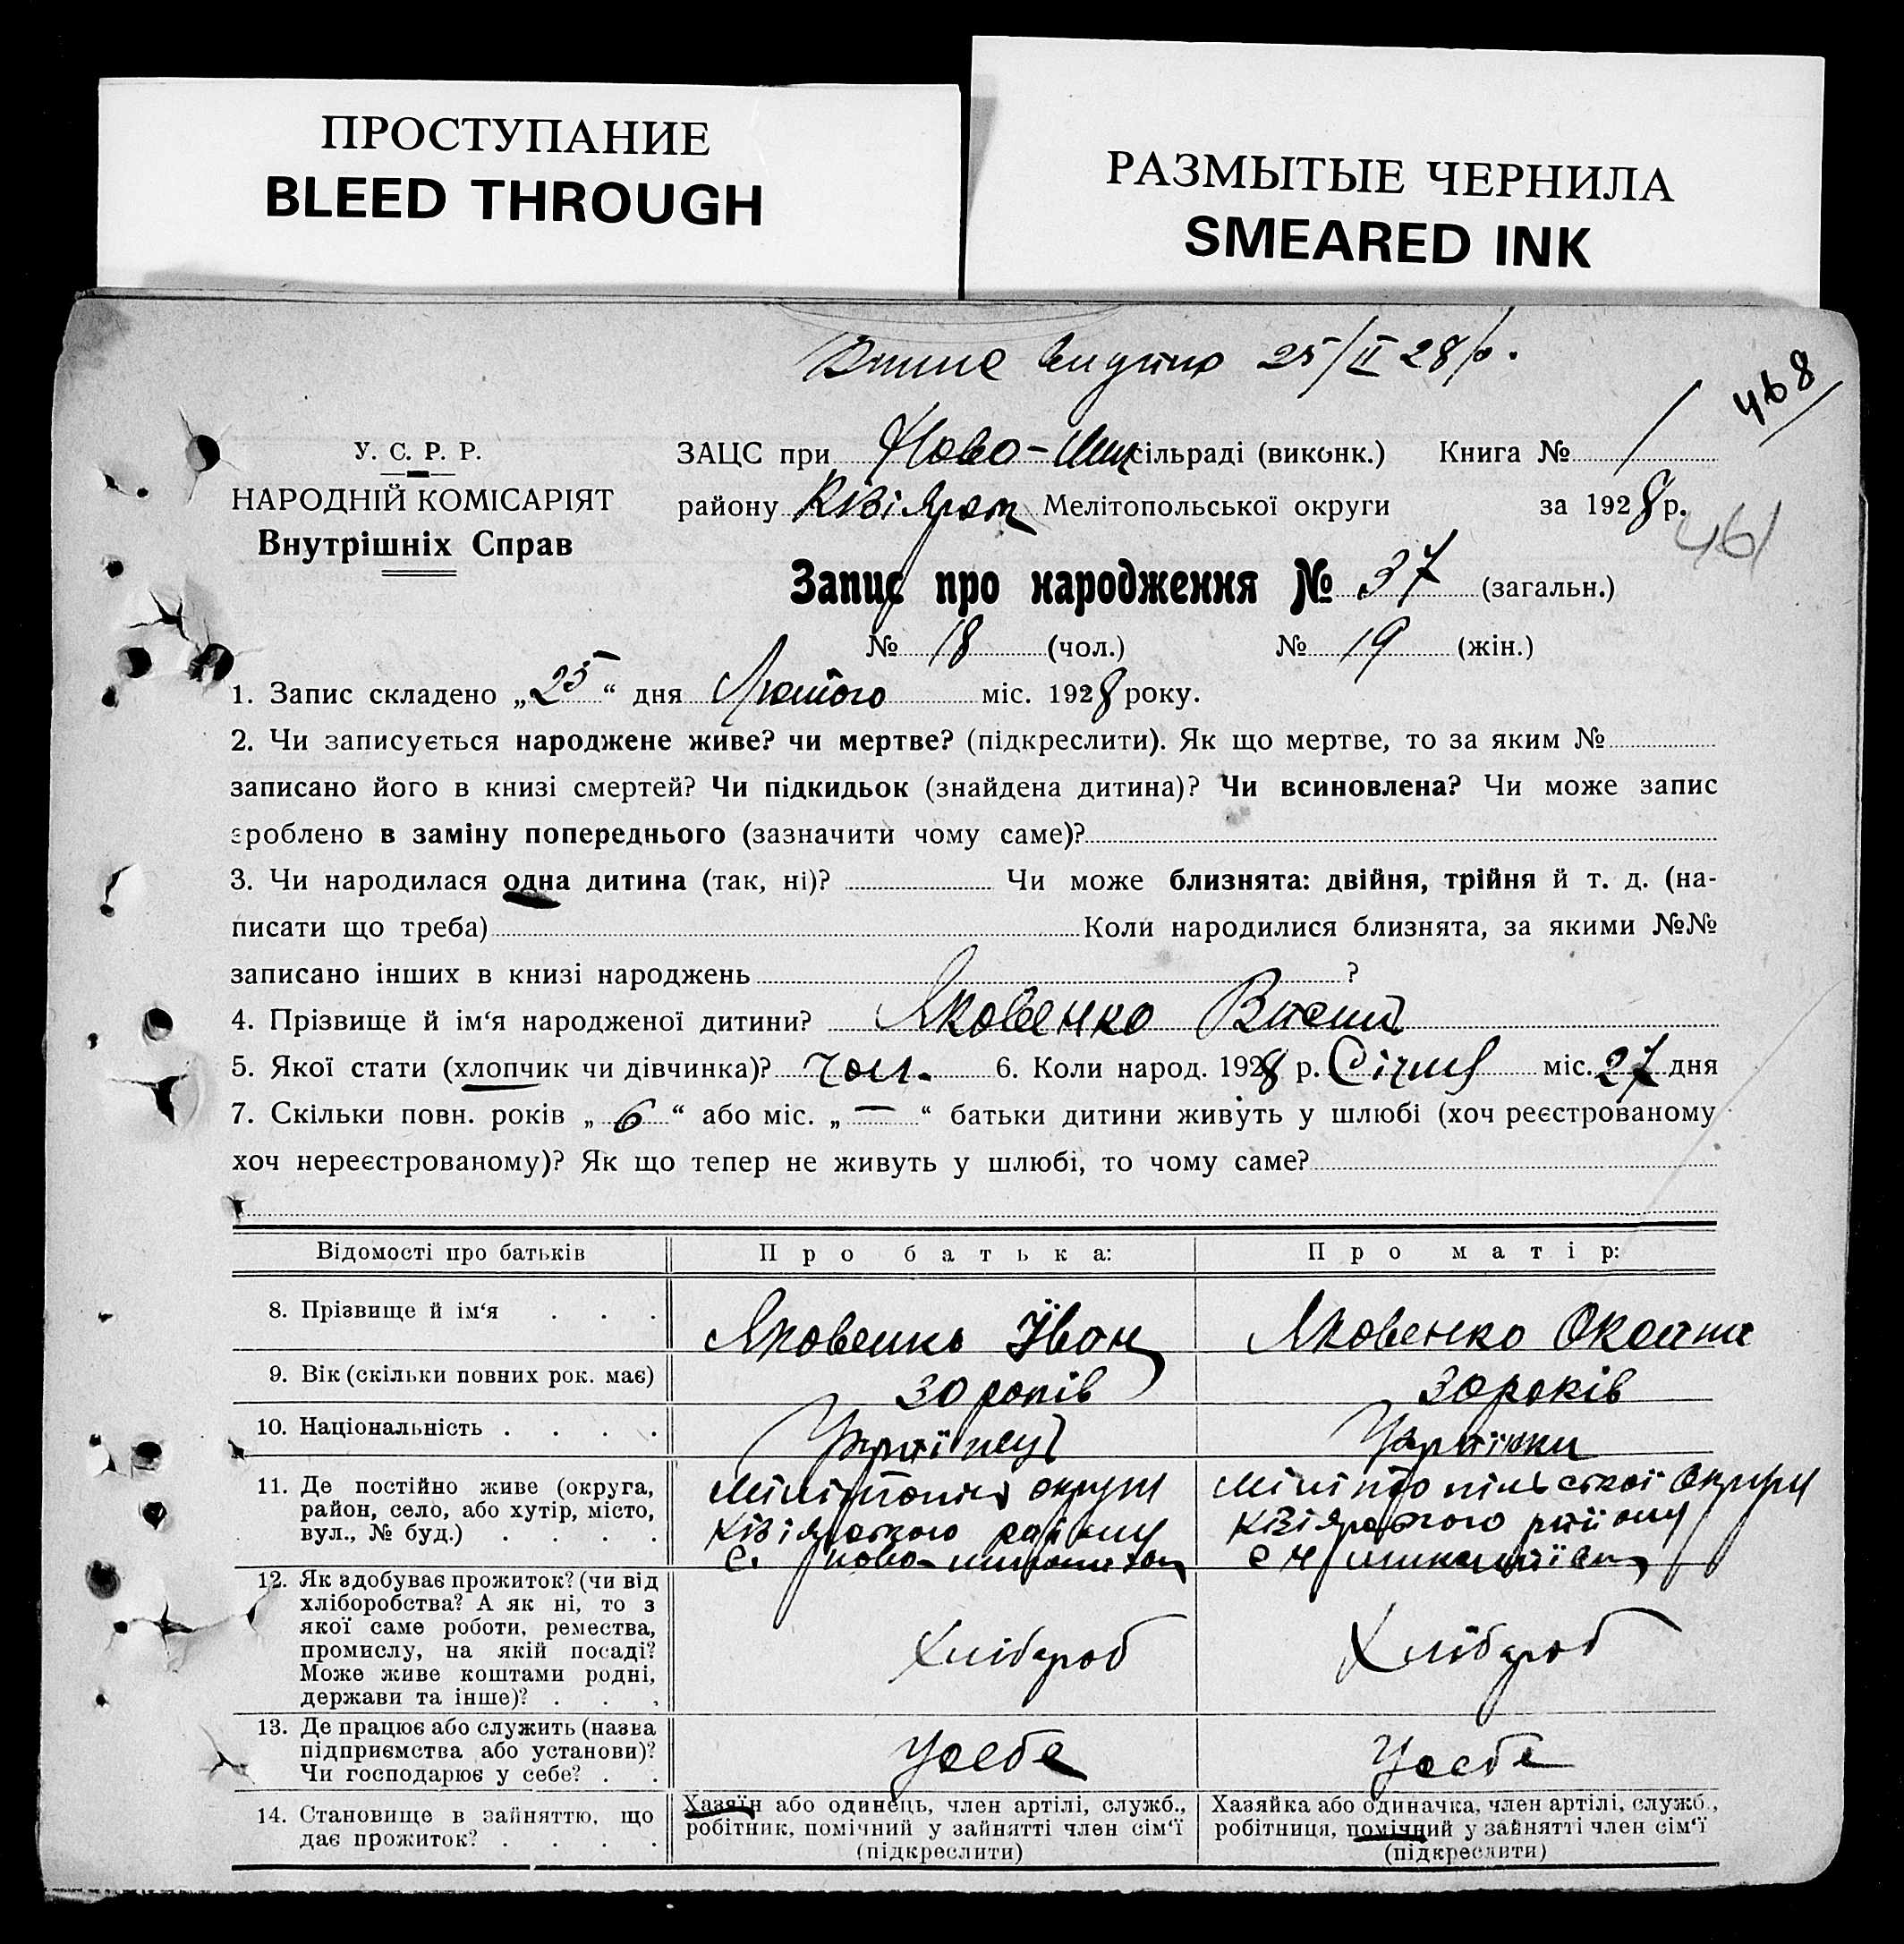 ПРОСТУПАНИЕ
BLEED THROUGH
РАЗМЫТЫЕ ЧЕРНИЛА
SMEARED INK
25/II 28 р.
468
У. С. Р. Р.
НАРОДНІЙ КОМІСАРІЯТ
Внутрішніх Справ
ЗАЦС при Ново- сільраді (виконк.) Книга № 1
району Кізіярск Мелітопольської округи за 1928 р.
461
Запис про народження № 37 (загальн.)
№ 18 (чол.) № 19 (жін.)
1. Запис складено „25“ дня Лютого міс. 1928 року.
2. Чи записується народжене живе? чи мертве? (підкреслити). Як що мертве, то за яким №
записано його в книзі смертей? Чи підкидьок (знайдена дитина)? Чи всиновлена? Чи може запис
зроблено в заміну попереднього (зазначити чому саме)?
3. Чи народилася одна дитина (так, ні)? Чи може близнята: двійня, трійня й т. д. (на-
писати що треба) Коли народилися близнята, за якими №№
записано інших в книзі народжень ?
4. Прізвище й ім‘я народженої дитини? Яковенко
5. Якої стати (хлопчик чи дівчинка)? чол. 6. Коли народ. 1928 р. Січня міс. 27 дня
7. Скільки повн. років „6“ або міс. „—“ батьки дитини живуть у шлюбі (хоч реєстрованому
хоч нереєстрованому)? Як що тепер не живуть у шлюбі, то чому саме?
Відомості про батьків
Про батька:
Про матір:
8. Прізвище й ім‘я . . .
Яковенко Іван
Яковенко Оксана
9. Вік (скільки повних рок. має)
30 років
30 років
10. Національність . . . .
Українец
Українка
11. Де постійно живе (округа,
район, село, або хутір, місто,
вул., № буд.) . . . .
округи
Кізіярського району
с. Ново-
Мілітопільської Округи
Кізіярського району
с Н
12. Як здобуває прожиток? (чи від
хліборобства? А як ні, то з
якої саме роботи, ремества,
промислу, на якій посаді?
Може живе коштами родні,
держави та інше)? . . .
Хлібороб
Хлібороб
13. Де працює або служить (назва
підприємства або установи)?
Чи господарює у себе? . .
Усебе
Усебе
14. Становище в зайняттю, що
дає прожиток? . . . .
Хазяїн або одинець, член артілі, служб.,
робітник, помічний у зайнятті член сім‘ї
(підкреслити)
Хазяйка або одиначка, член артілі, служб.,
робітниця, помічний у зайнятті член сім‘ї
(підкреслити)